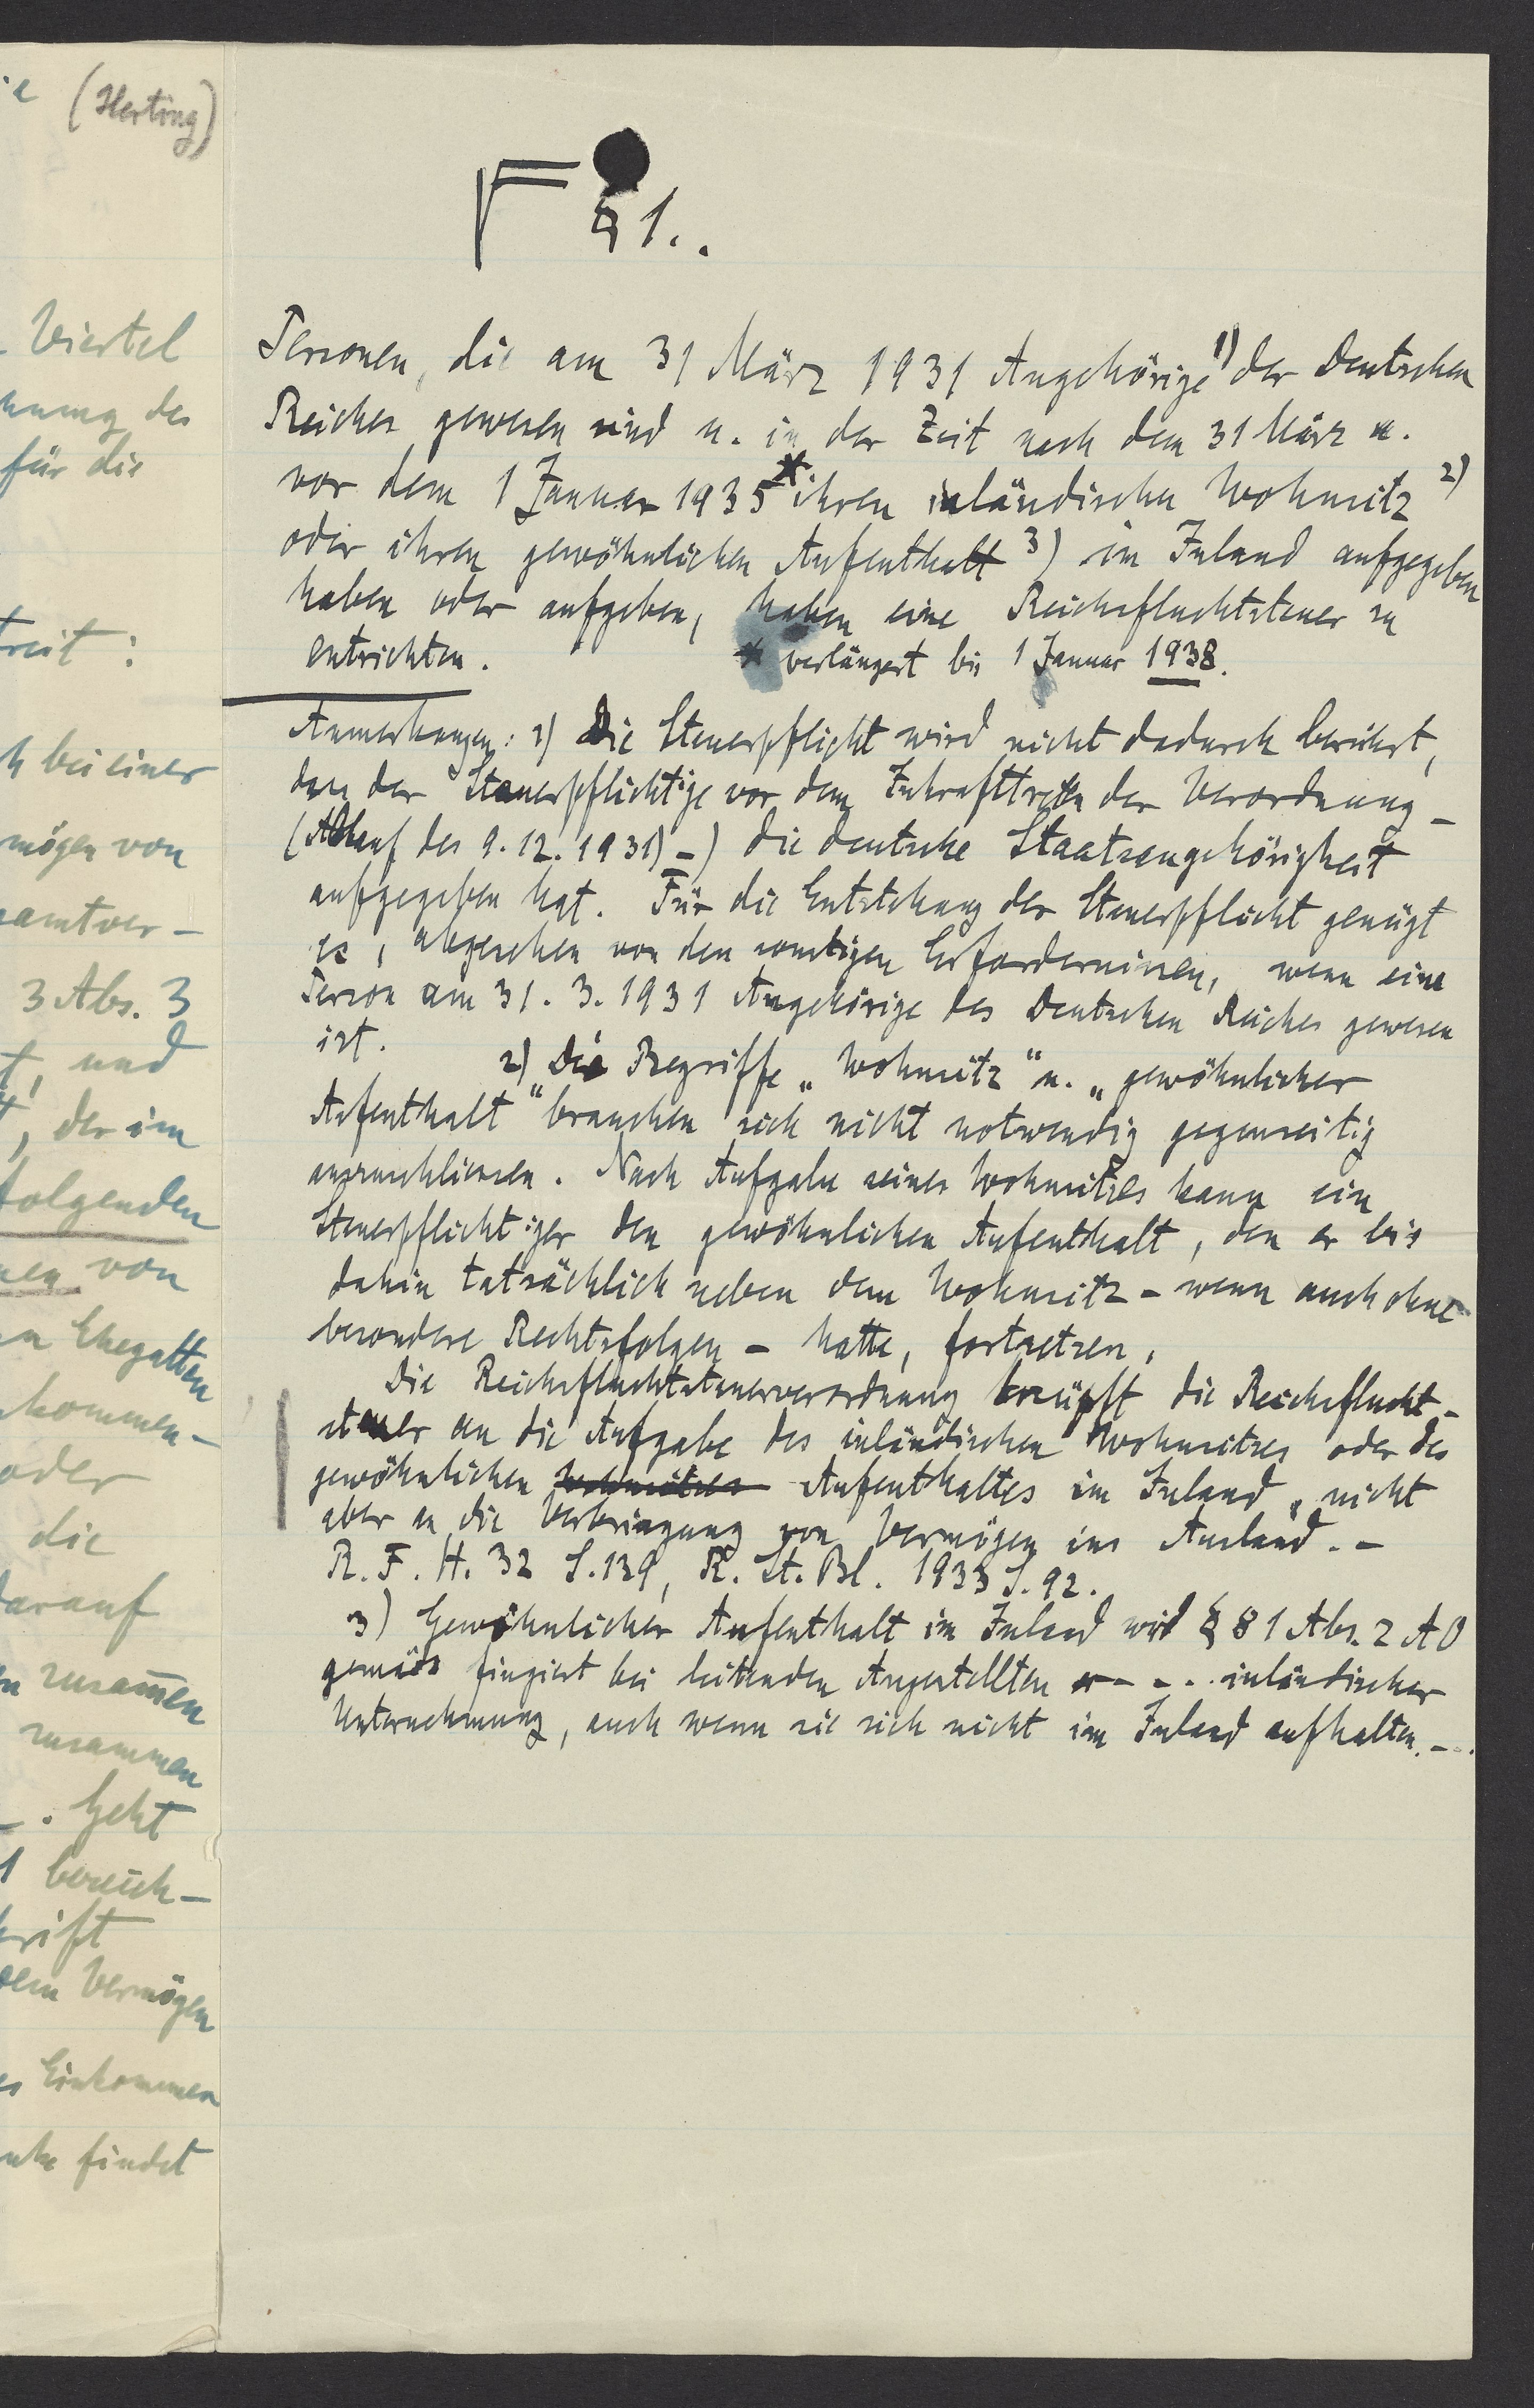 (Herting)
Viertel
nung des
für die
treit :
h bei einer
mögen von
samtver-
3 Abs. 3
t, und
, der im
folgenden
nen von
en Ehegatten
kommen-
oder
die
darauf
en zusam̅en
zusammen
_ . Geht
1 bereich-
hrift
dem Vermögen
es Einkommen
uhe findet
§ 1..
Personen, die am 31 März 1931 Angehörige 1) der Deutschen
Reiches gewesen sind u. in der Zeit nach dem 31 März u.
vor dem 1 Januar 1935 * ihren inländischen Wohnsitz 2)
oder ihren gewöhnlichen Aufenthalt 3) im Inland aufgegeben
haben oder aufgeben, haben eine Reichsfluchtsteuer zu
entrichten.
* verlängert bis 1 Januar 1938.
Anmerkungen: 1) Die Steuerpflicht wird nicht dadurch berührt,
dass der Steuerpflichtige vor dem Inkrafttreten der Verordnung -
(Ablauf des 9.12.1931) -) die deutsche Staatsangehörigkeit
aufgegeben hat. Für die Entstehung der Steuerpflicht genügt
es, abgesehen von den sonstigen Erfordernissen, wenn eine
Person am 31. 3. 1931 Angehörige des Deutschen Reiches gewesen
ist. 2) Die Begriffe „Wohnsitz" u. „gewöhnlicher
Aufenthalt" brauchen sich nicht notwendig gegenseitig
auszuschliessen. Nach Aufgabe seines Wohnsitzes kann ein
Steuerpflichtiger den gewöhnlichen Aufenthalt, den er bis
dahin tatsächlich neben dem Wohnsitz - wenn auch ohne
besondere Rechtsfolgen - hatte, fortsetzen.
Die Reichsfluchtsteuerverordnung knüpft die Reichsflucht-
steuer an die Aufgabe des inländischen Wohnsitzes oder des
gewöhnlichen Wohnsitzes Aufenthaltes im Inland, nicht
aber an die Verbringung von Vermögen ins Ausland. -
R. F. H. 32 S. 129, R. St. Bl. 1933 S. 92.
3) Gewöhnlicher Aufenthalt im Inland wird § 81 Abs. 2 AO
gemäss fingiert bei leitenden Angestellten - - .. inländischer
Unternehmung, auch wenn sie sich nicht im Inland aufhalten. - ..